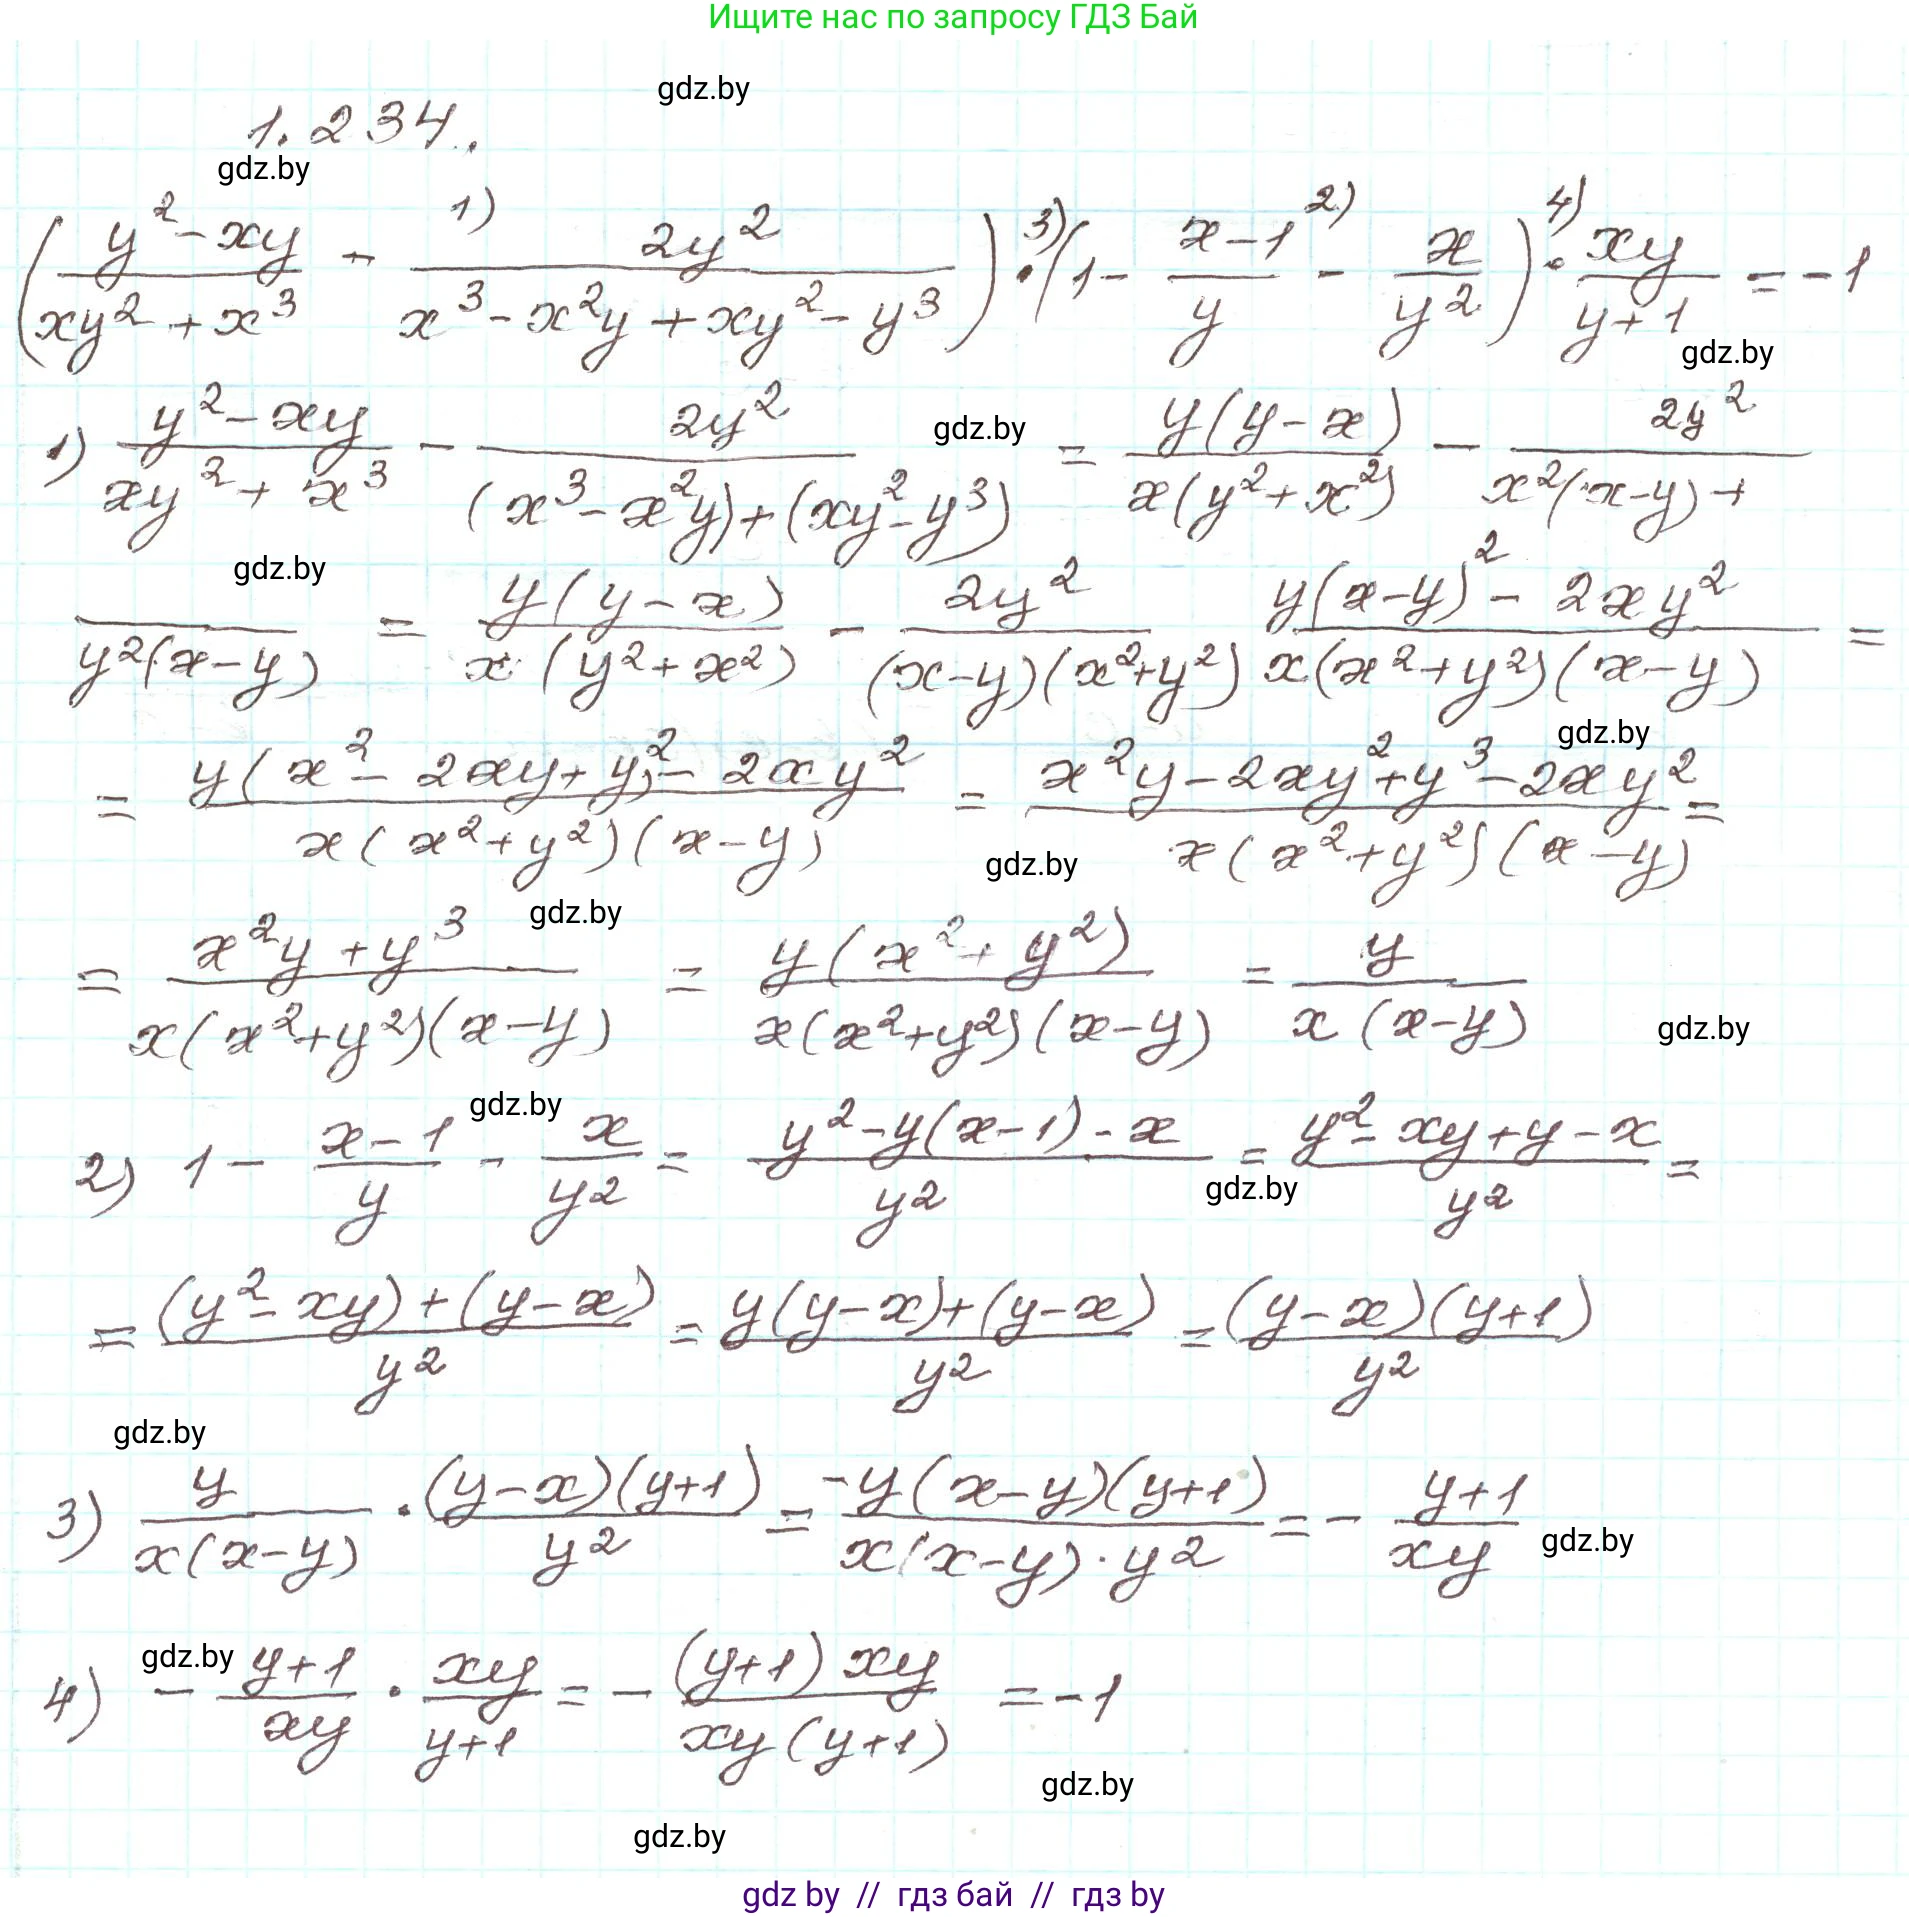 Ищите нас по запросу ГДЗ Бай
gdz.by
1.234.
gdz.by
((y² - xy)/(xy² + x³) -¹⁾ 2y²/(x³ - x²y + xy² - y³)) ·³⁾ (1 - (x-1)/y -²⁾ x/y²) ·⁴⁾ xy/(y+1) = -1
gdz.by
1) (y² - xy)/(xy² + x³) - 2y²/((x³ - x²y) + (xy² - y³)) = y(y - x)/(x(y² + x²)) - 2y²/(x²(x-y) +
gdz.by
gdz.by
/y²(x-y)) = y(y - x)/(x(y² + x²)) - 2y²/((x-y)(x²+y²)) (y(x-y)² - 2xy²)/(x(x²+y²)(x-y)) =
gdz.by
= (y(x² - 2xy + y²) - 2xy²)/(x(x²+y²)(x-y)) = (x²y - 2xy² + y³ - 2xy²)/(x(x²+y²)(x-y)) =
gdz.by
gdz.by
= (x²y + y³)/(x(x²+y²)(x-y)) = y(x² + y²)/(x(x²+y²)(x-y)) = y/(x(x-y))
gdz.by
gdz.by
2) 1 - (x-1)/y - x/y² = (y² - y(x-1) - x)/y² = (y² - xy + y - x)/y² =
gdz.by
= ((y² - xy) + (y - x))/y² = (y(y-x) + (y-x))/y² = (y-x)(y+1)/y²
gdz.by
3) y/(x(x-y)) · (y-x)(y+1)/y² = -y(x-y)(y+1)/(x(x-y)·y²) = - (y+1)/xy
gdz.by
gdz.by
4) - (y+1)/xy · xy/(y+1) = - (y+1)xy/(xy(y+1)) = -1
gdz.by
gdz.by
gdz by // гдз бай // гдз by